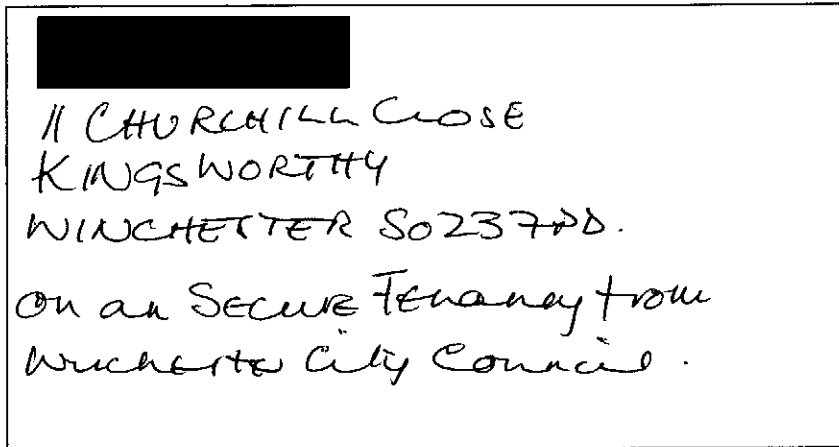 11 CHURCHILL CLOSE
KINGSWORTHY
WINCHESTER SO237PD.
on an SECURE TENANCY from
Winchester City Council.